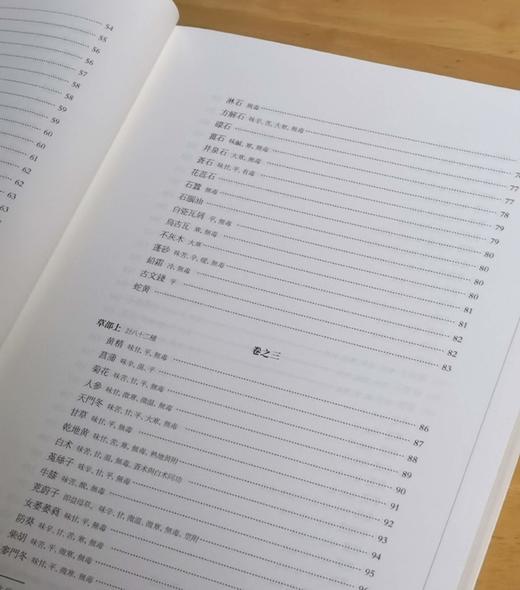 54
55
56
56
57
58
58
59
59
60
60
61
62
62
63
63
淋石 無毒
方解石 味辛,苦,大寒,無毒
礞石
薑石 味鹹,寒,無毒 77
井泉石 大寒,無毒 77
蒼石 味甘,平,有毒 77
花蕊石 78
石蠶 無毒 79
石腦油 79
白瓷瓦屑 平,無毒 80
烏古瓦 寒,無毒 80
不灰木 大寒 80
蓬砂 味苦,辛,暖,無毒 81
鉛霜 冷,無毒 81
古文錢 平 82
蛇黄 83
卷之三
草部上 計八十二種
黄精 味甘,平,無毒 86
菖蒲 味辛,温,平 87
菊花 味苦,甘,平,無毒 88
人參 味甘,微寒,微温,無毒 89
天門冬 味苦,甘,平,大寒,無毒 90
甘草 味甘,平,無毒 91
乾地黄 味甘,苦,寒,無毒,熟地黄附 92
白术 味苦,甘,温,無毒,蒼术與白术同功 93
菟絲子 味辛,甘,平,無毒 94
牛膝 味苦,酸,無毒 95
茺蔚子 即益母草,味辛,甘,微温,微寒,無毒,莖附 96
女萎萎蕤 味甘,平,無毒
防葵 味辛,甘,苦,寒,無毒
柴胡 味苦,平,微寒,無毒
麥門冬 味甘,平,微寒,無毒